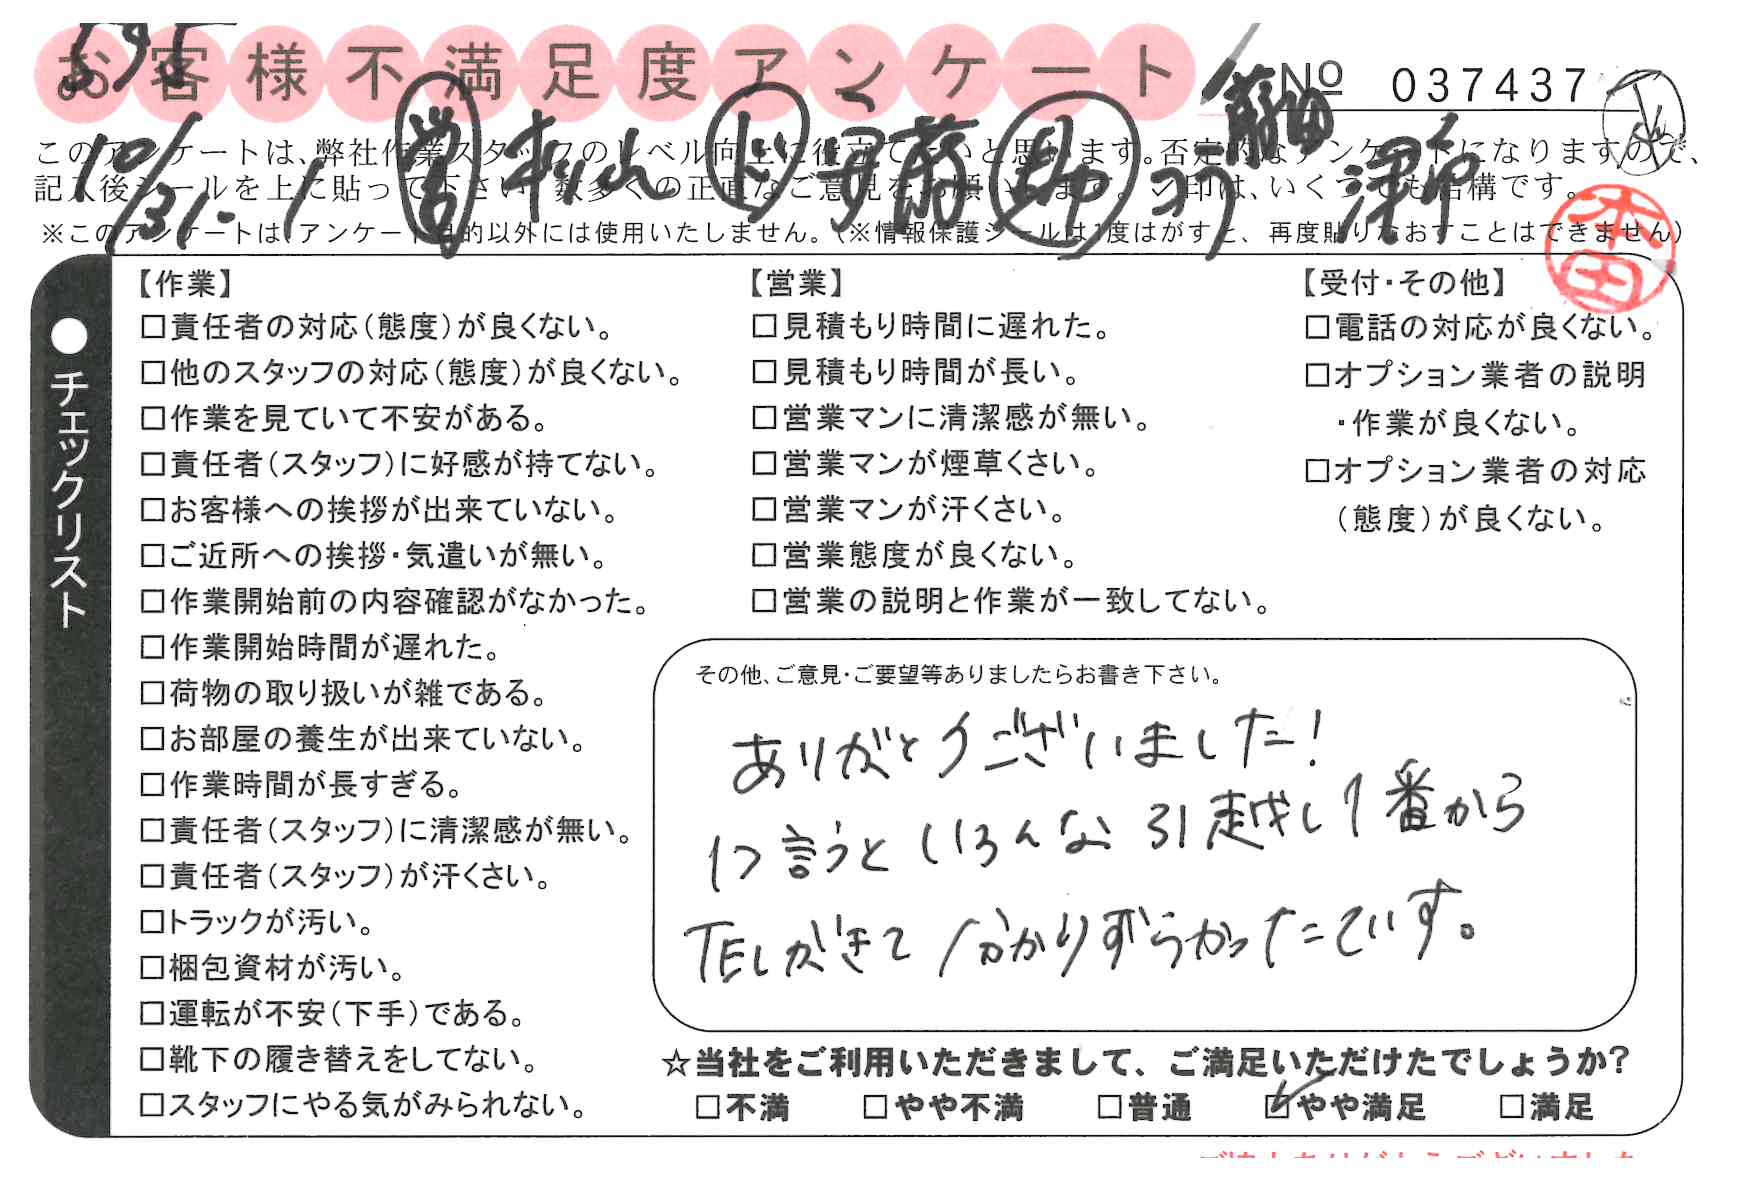 お客様不満足度アンケート
No 037437
このアンケートは、弊社作業スタッフのレベル向上に役立てたいと思います。否定的なアンケートになりますので、
記入後シールを上に貼って下さい。数多くの正直なご意見をお願いします。レ印は、いくつでも結構です。
※このアンケートは、アンケート目的以外には使用いたしません。(※情報保護シールは1度はがすと、再度貼りなおすことはできません)
10/31-1 営 松山 ド 伊藤 助
本田
●チェックリスト
【作業】
□責任者の対応(態度)が良くない。
□他のスタッフの対応(態度)が良くない。
□作業を見ていて不安がある。
□責任者(スタッフ)に好感が持てない。
□お客様への挨拶が出来ていない。
□ご近所への挨拶・気遣いが無い。
□作業開始前の内容確認がなかった。
□作業開始時間が遅れた。
□荷物の取り扱いが雑である。
□お部屋の養生が出来ていない。
□作業時間が長すぎる。
□責任者(スタッフ)に清潔感が無い。
□責任者(スタッフ)が汗くさい。
□トラックが汚い。
□梱包資材が汚い。
□運転が不安(下手)である。
□靴下の履き替えをしてない。
□スタッフにやる気がみられない。
【営業】
□見積もり時間に遅れた。
□見積もり時間が長い。
□営業マンに清潔感が無い。
□営業マンが煙草くさい。
□営業マンが汗くさい。
□営業態度が良くない。
□営業の説明と作業が一致してない。
【受付・その他】
□電話の対応が良くない。
□オプション業者の説明
・作業が良くない。
□オプション業者の対応
(態度)が良くない。
その他、ご意見・ご要望等ありましたらお書き下さい。
ありがとうございました!
1つ言うといろんな引越し1番から
TELがきて分かりずらかったでいす。
☆当社をご利用いただきまして、ご満足いただけたでしょうか?
□不満 □やや不満 □普通 ☑やや満足 □満足